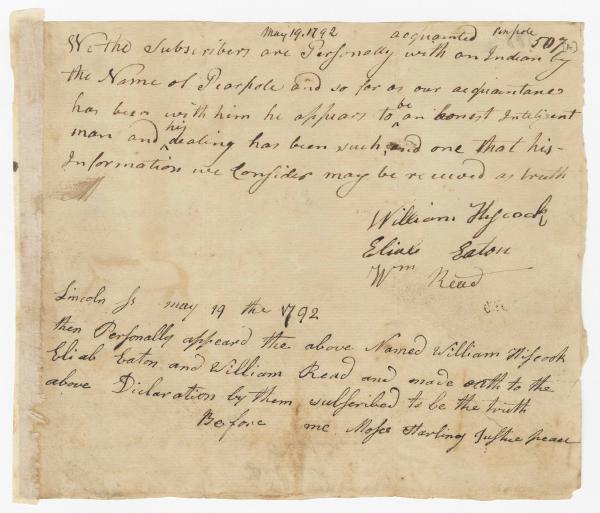 May 19. 1792
acquainted
Penpole
507
We the Subscribers are Personally with an Indian by
the Name of Pearpole and so for as our acquaintance
has been with him he appears to be an honest Inteligent
man and his dealing has been such, and one that his
Information we Consider may be received as truth
William Hiscock
Eliab Eaton
Wm Read
Lincoln ss may 19 the 1792
then Personally appeard the above Named William Hiscock
Eliab Eaton and William Read and made oath to the
above Diclaration by them subscribed to be the truth
Before me Moses Starling Justice peace